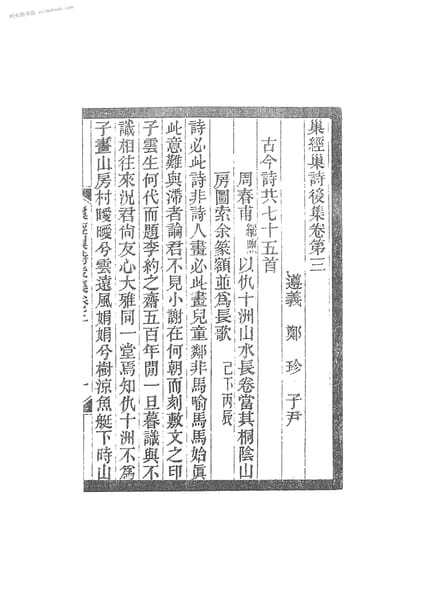 巢經巢詩後集卷第三
遵義 鄭 珍 子尹
古今詩共七十五首
周春甫以仇十洲山水長卷當其桐陰山
房圖索余篆額並爲長歌 己下丙辰
詩必此詩非詩人畫必此畫兒童鄰非馬喻馬馬始眞
此意難與滯者論君不見小謝在何朝而刻敷文之印
子雲生何代而題李約之齋五百年閒一旦暮識與不
識相往來況君尙友心大雅同一堂焉知仇十洲不爲
子畫山房村曖曖兮雲遠風娟娟兮樹涼魚艇下時山
巢經巢詩後集卷三 一